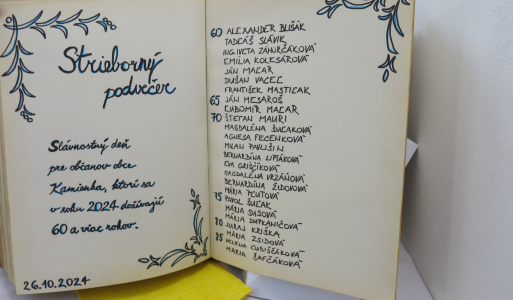 Strieborný
podvečer
Slávnostný deň
pre občanov obce
Kamienka, ktorí sa
v roku 2024 dožívajú
60 a viac rokov.
26.10.2024
60 ALEXANDER BLIŠÁK
TADEÁŠ SLÁVIK
ING. IVETA ZÁHURČÁKOVÁ
EMÍLIA KOLESÁROVÁ
JÁN MACAR
DUŠAN VACEĽ
FRANTIŠEK MASTIĽAK
65 JÁN MESAROŠ
ĽUBOMÍR MACAR
70 ŠTEFAN MAURI
MAGDALÉNA ŠUĽAKOVÁ
AGNESA FECENKOVÁ
MILAN PAVLIŠIN
BERNARDÍNA LIPTÁKOVÁ
EVA GRIŠČÍKOVÁ
MAGDALÉNA VRZÁŇOVÁ
BERNARDÍNA ŽIDOVOVÁ
MÁRIA PCUTOVÁ
75 PAVOL ŠUĽAK
MÁRIA SUSOVÁ
MÁRIA DUFKANIČOVÁ
80 JURAJ KRIŠKA
MÁRIA ZSIDOVÁ
85 HELENA ČUBIŠČÁKOVÁ
MÁRIA ŠAFČÁKOVÁ